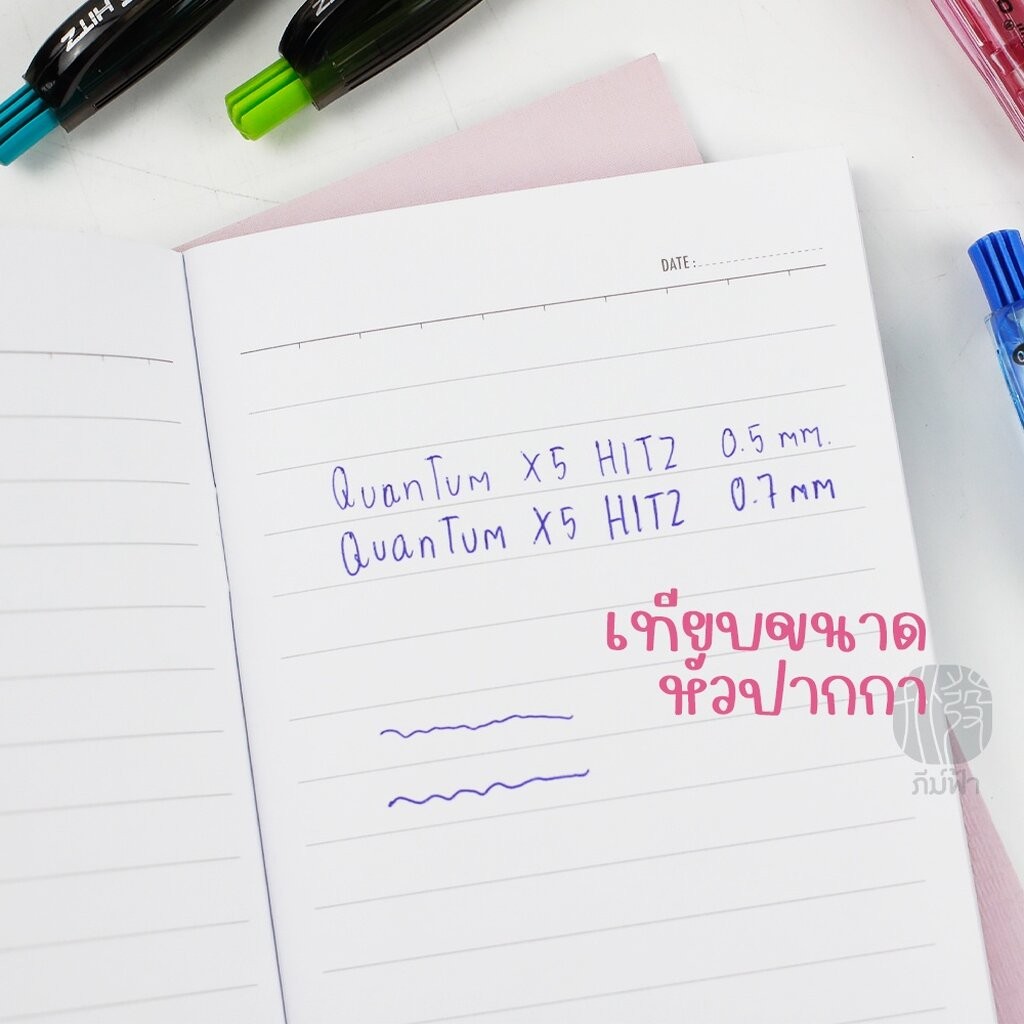 HITZ
DATE :
QuanTum X5 HITZ 0.5 mm.
QuanTum X5 HITZ 0.7 mm
เทียบขนาด
หัวปากกา
ภีม์ฟ้า